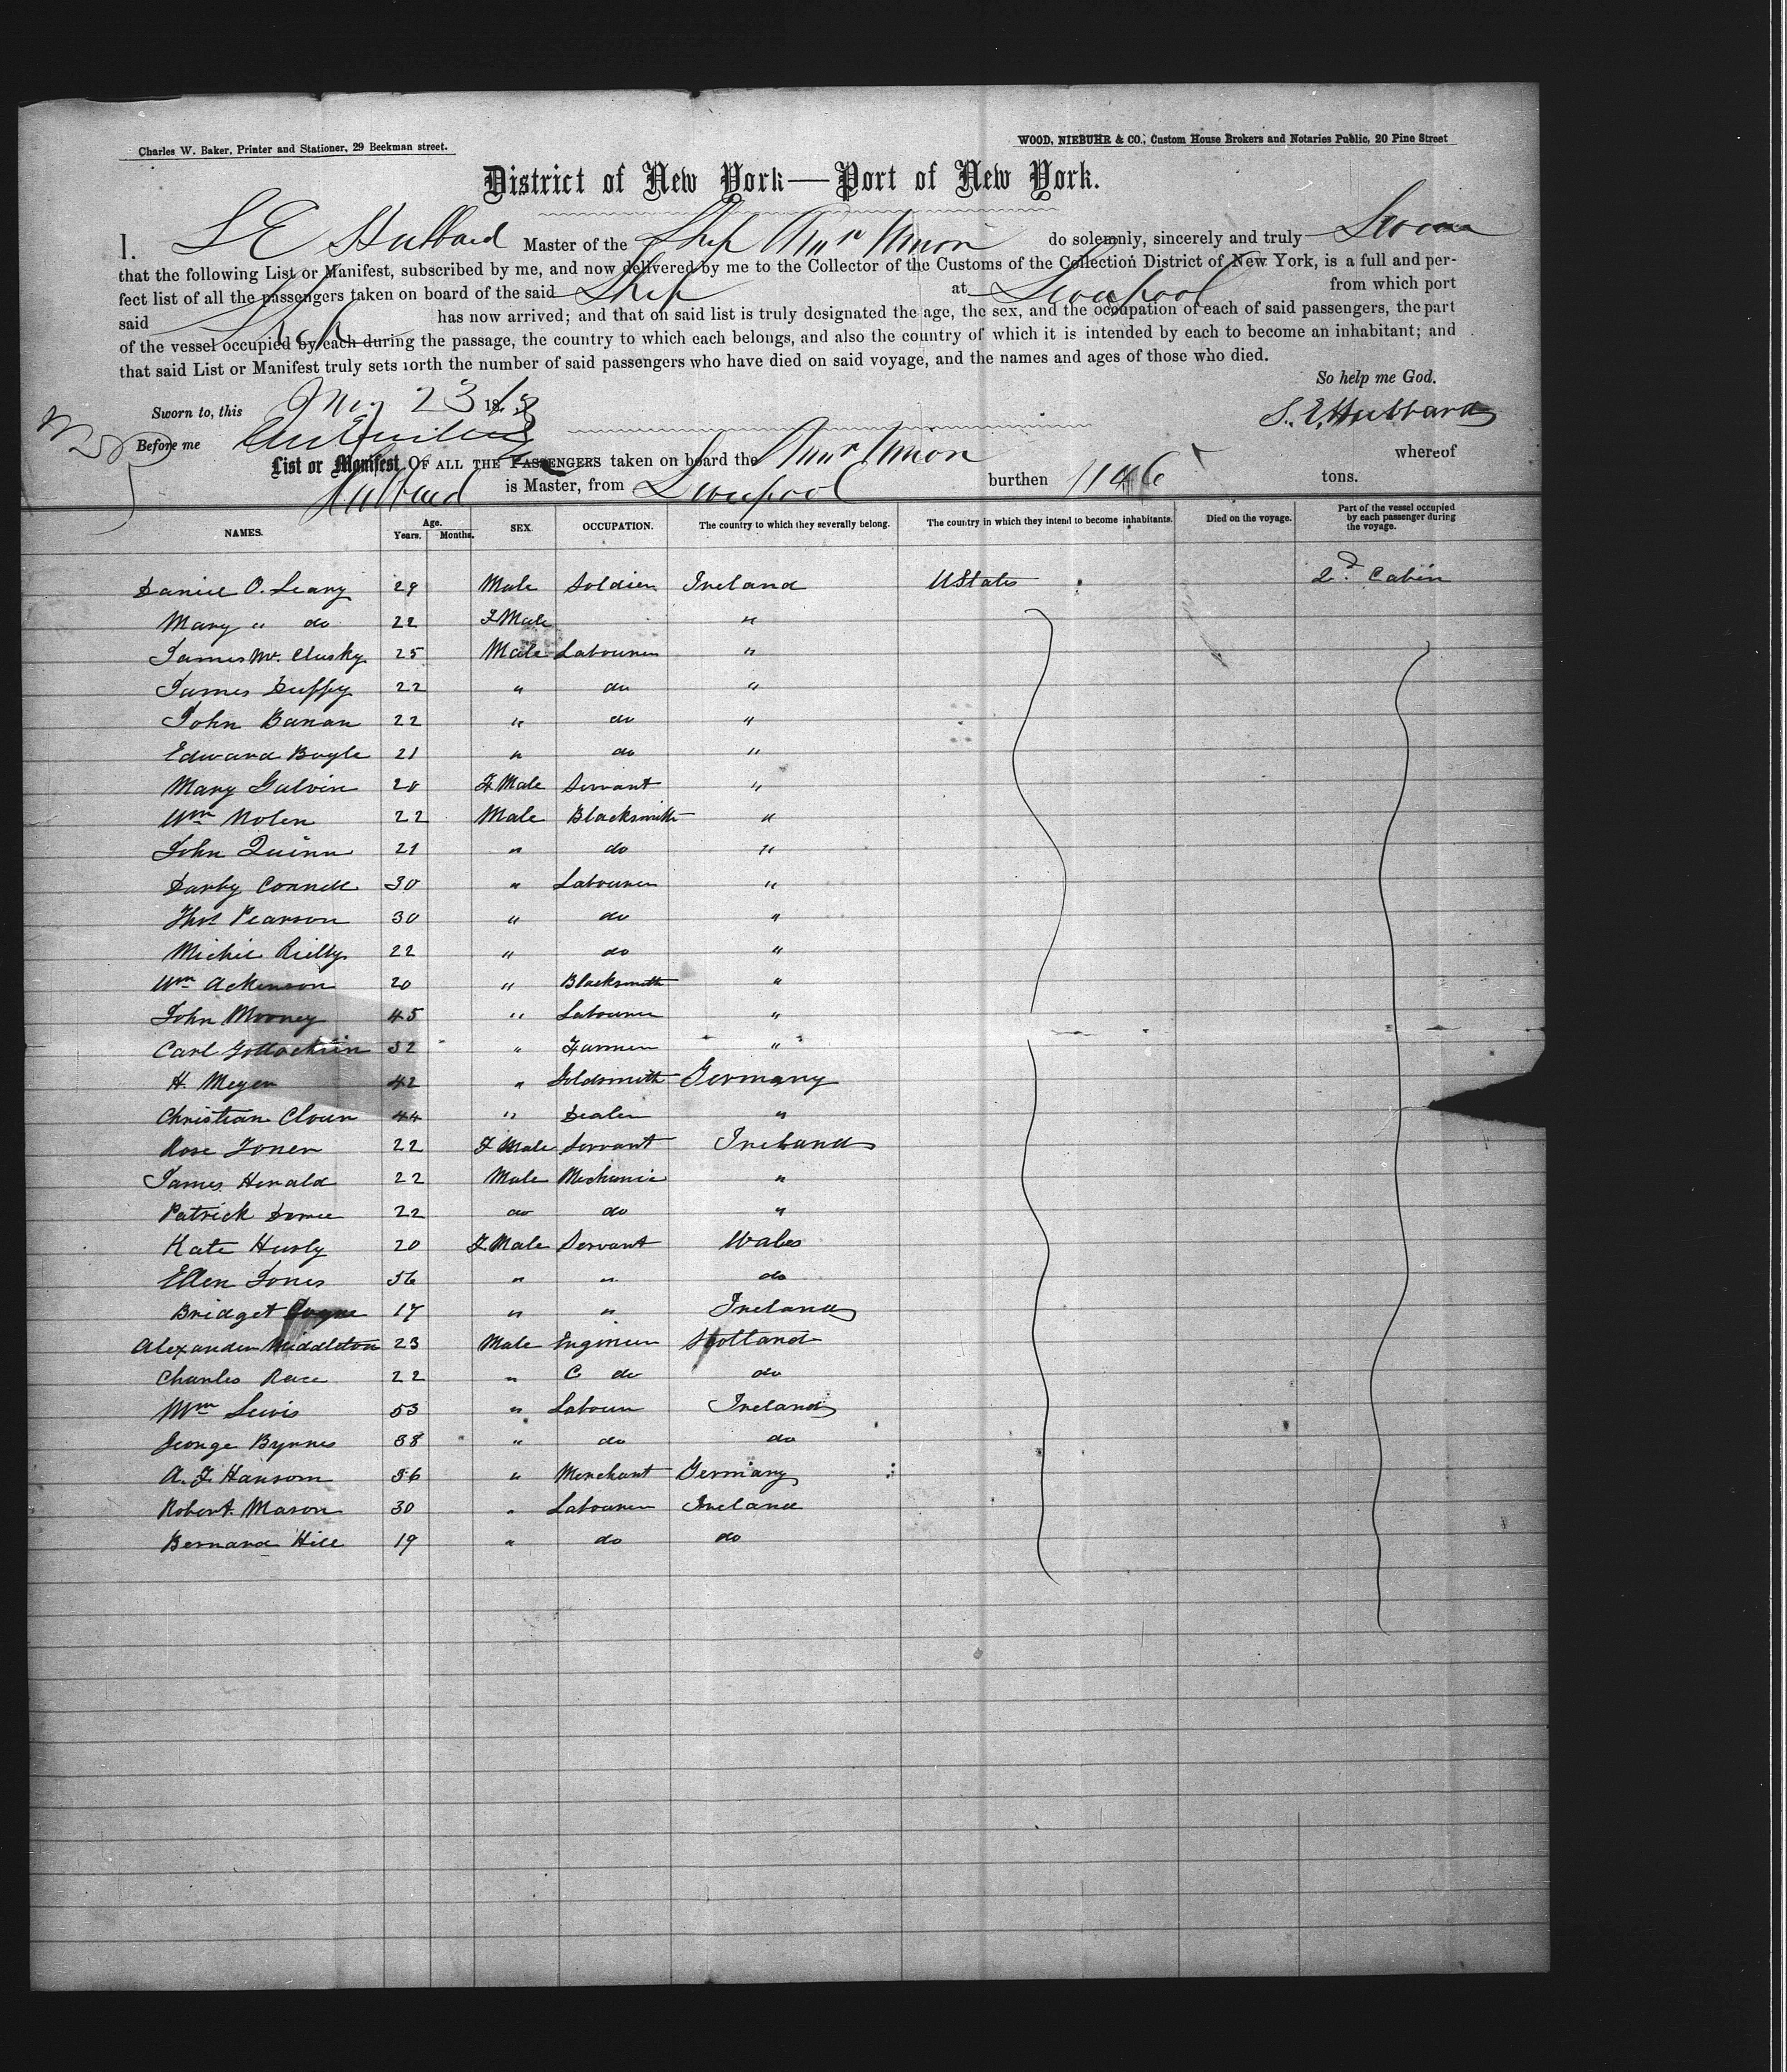 Charles W. Baker, Printer and Stationer, 29 Beekman street.
WOOD, NIEBUHR & CO., Custom House Brokers and Notaries Public, 20 Pine Street
District of New York—Port of New York.
I, S E Hubbard Master of the Ship Amn Union do solemnly, sincerely and truly
that the following List or Manifest, subscribed by me, and now delivered by me to the Collector of the Customs of the Collection District of New York, is a full and per-
fect list of all the passengers taken on board of the said Ship at Liverpool from which port
said Ship has now arrived; and that on said list is truly designated the age, the sex, and the occupation of each of said passengers, the part
of the vessel occupied by each during the passage, the country to which each belongs, and also the country of which it is intended by each to become an inhabitant; and
that said List or Manifest truly sets forth the number of said passengers who have died on said voyage, and the names and ages of those who died.
So help me God.
Sworn to, this 23 18
S. E. Hubbard
Before me
List or Manifest OF ALL THE PASSENGERS taken on board the Amn Union whereof
Hubbard is Master, from Liverpool burthen 1146 tons.
NAMES. Age. Years. Months. SEX. OCCUPATION. The country to which they severally belong. The country in which they intend to become inhabitants. Died on the voyage. Part of the vessel occupied by each passenger during the voyage.
Daniel O. Leary 29 Male Soldier Ireland UStates 2d. Cabin
Mary " do 22 F Male "
James Mc. Clusky 25 Male Labourer "
James Duffy 22 " do "
John Banan 22 " do "
Edward Boyle 21 " do "
Mary Galvin 20 F Male Servant "
Wm Nolen 22 Male Blacksmith "
John Quinn 21 " do "
Darby Connell 30 " Labourer "
Thos Pearson 30 " do "
Michie Rielly 22 " do "
Wm Ackinson 20 " Blacksmith "
John Mooney 45 " Labourer "
Carl 32 " Farmer "
H. Meyer 42 " Goldsmith Germany
Christian Clour 44 " Dealer "
Rose Toner 22 F Male Servant Ireland
James Herald 22 Male Mechanic "
Patrick 22 do do "
Kate Hurly 20 F. Male Servant Wales
Ellen Jones 56 " " do
Bridget 17 " " Ireland
Alexander Middleton 23 Male Engineer Scotland
Charles Race 22 " C do do
Wm Lewis 53 " Labour Ireland
George Byrnes 38 " do do
A. F. Hansom 36 " Merchant Germany
Robert Mason 30 " Labourer Ireland
Bernard Hill 19 " do do